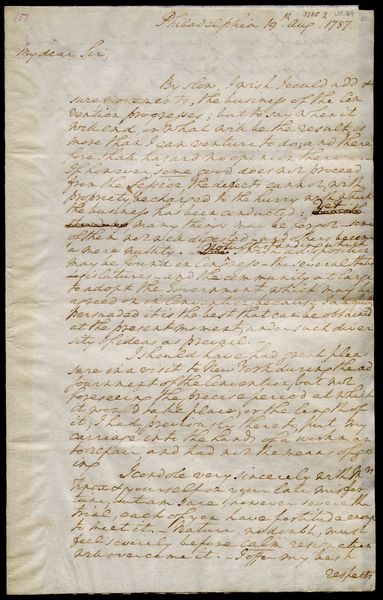 Philadelphia 19th Aug. 1787.
My dear Sir,
By slow, I wish I could add &
sure movements, the business of the Con-
vention progresses; but to say when it
will end, or what will be the result, is
more than I can venture to do; and there-
fore shall hazard no opinion thereon.
If however some good does not proceed
from the Session, the defects cannot, with
propriety, be charged to the hurry with which
the business has been conducted: yet
many things may be forgot, some
of them not well digested, and others become
a mere nullity. Notwithstanding which
I wish a disposition
may be found in Congress, the several State
Legislatures, and the community at large
to adopt the Government which may be
agreed on in Convention; because I am fully
persuaded it is the best that can be obtained
at the present moment, under such diver-
sity of ideas as prevail.
I should have had great plea-
sure in a visit to New York during the ad-
journment of the Convention; but not
foreseeing the precise period at which
it would take place, or the length of
it; I had, previously thereto, put my
carriage into the hands of a workman
to repair, and had not the means of go-
ing.
I condole very sincerely with Mrs.
Knox & yourself on your late misfor-
tune; but am sure, however severe the
trial, each of you have fortitude enough
to meet it. Nature, no doubt, must
feel severely before calm resignation
will over come it. I offer my best
respects